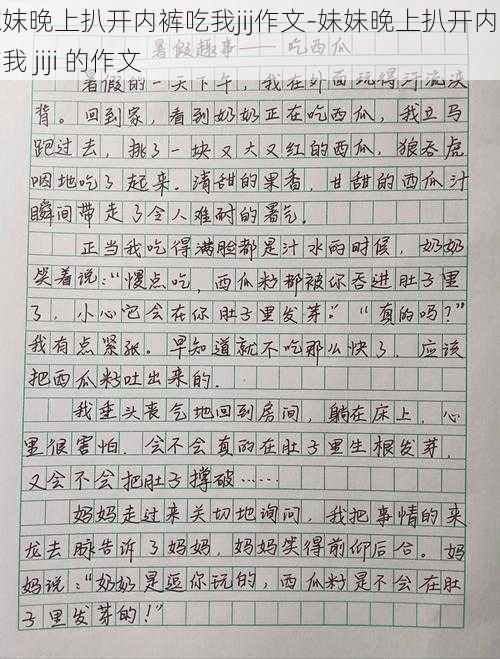 暑假趣事——吃西瓜
暑假的一天下午，我在外面玩得汗流浃
背。回到家，看到奶奶正在吃西瓜，我立马
跑过去，挑了一块又大又红的西瓜，狼吞虎
咽地吃了起来。清甜的果香，甘甜的西瓜汁
瞬间带走了令人难耐的暑气。
正当我吃得满脸都是汁水的时候，奶奶
笑着说："慢点吃，西瓜籽都被你吞进肚子里
了，小心它会在你肚子里发芽。""真的吗？"
我有点紧张。早知道就不吃那么快了，应该
把西瓜籽吐出来的.
我垂头丧气地回到房间，躺在床上，心
里很害怕.会不会真的在肚子里生根发芽，
又会不会把肚子撑破……
妈妈走过来关切地询问，我把事情的来
龙去脉告诉了妈妈，妈妈笑得前仰后合。妈
妈说："奶奶是逗你玩的，西瓜籽是不会在肚
子里发芽的！"